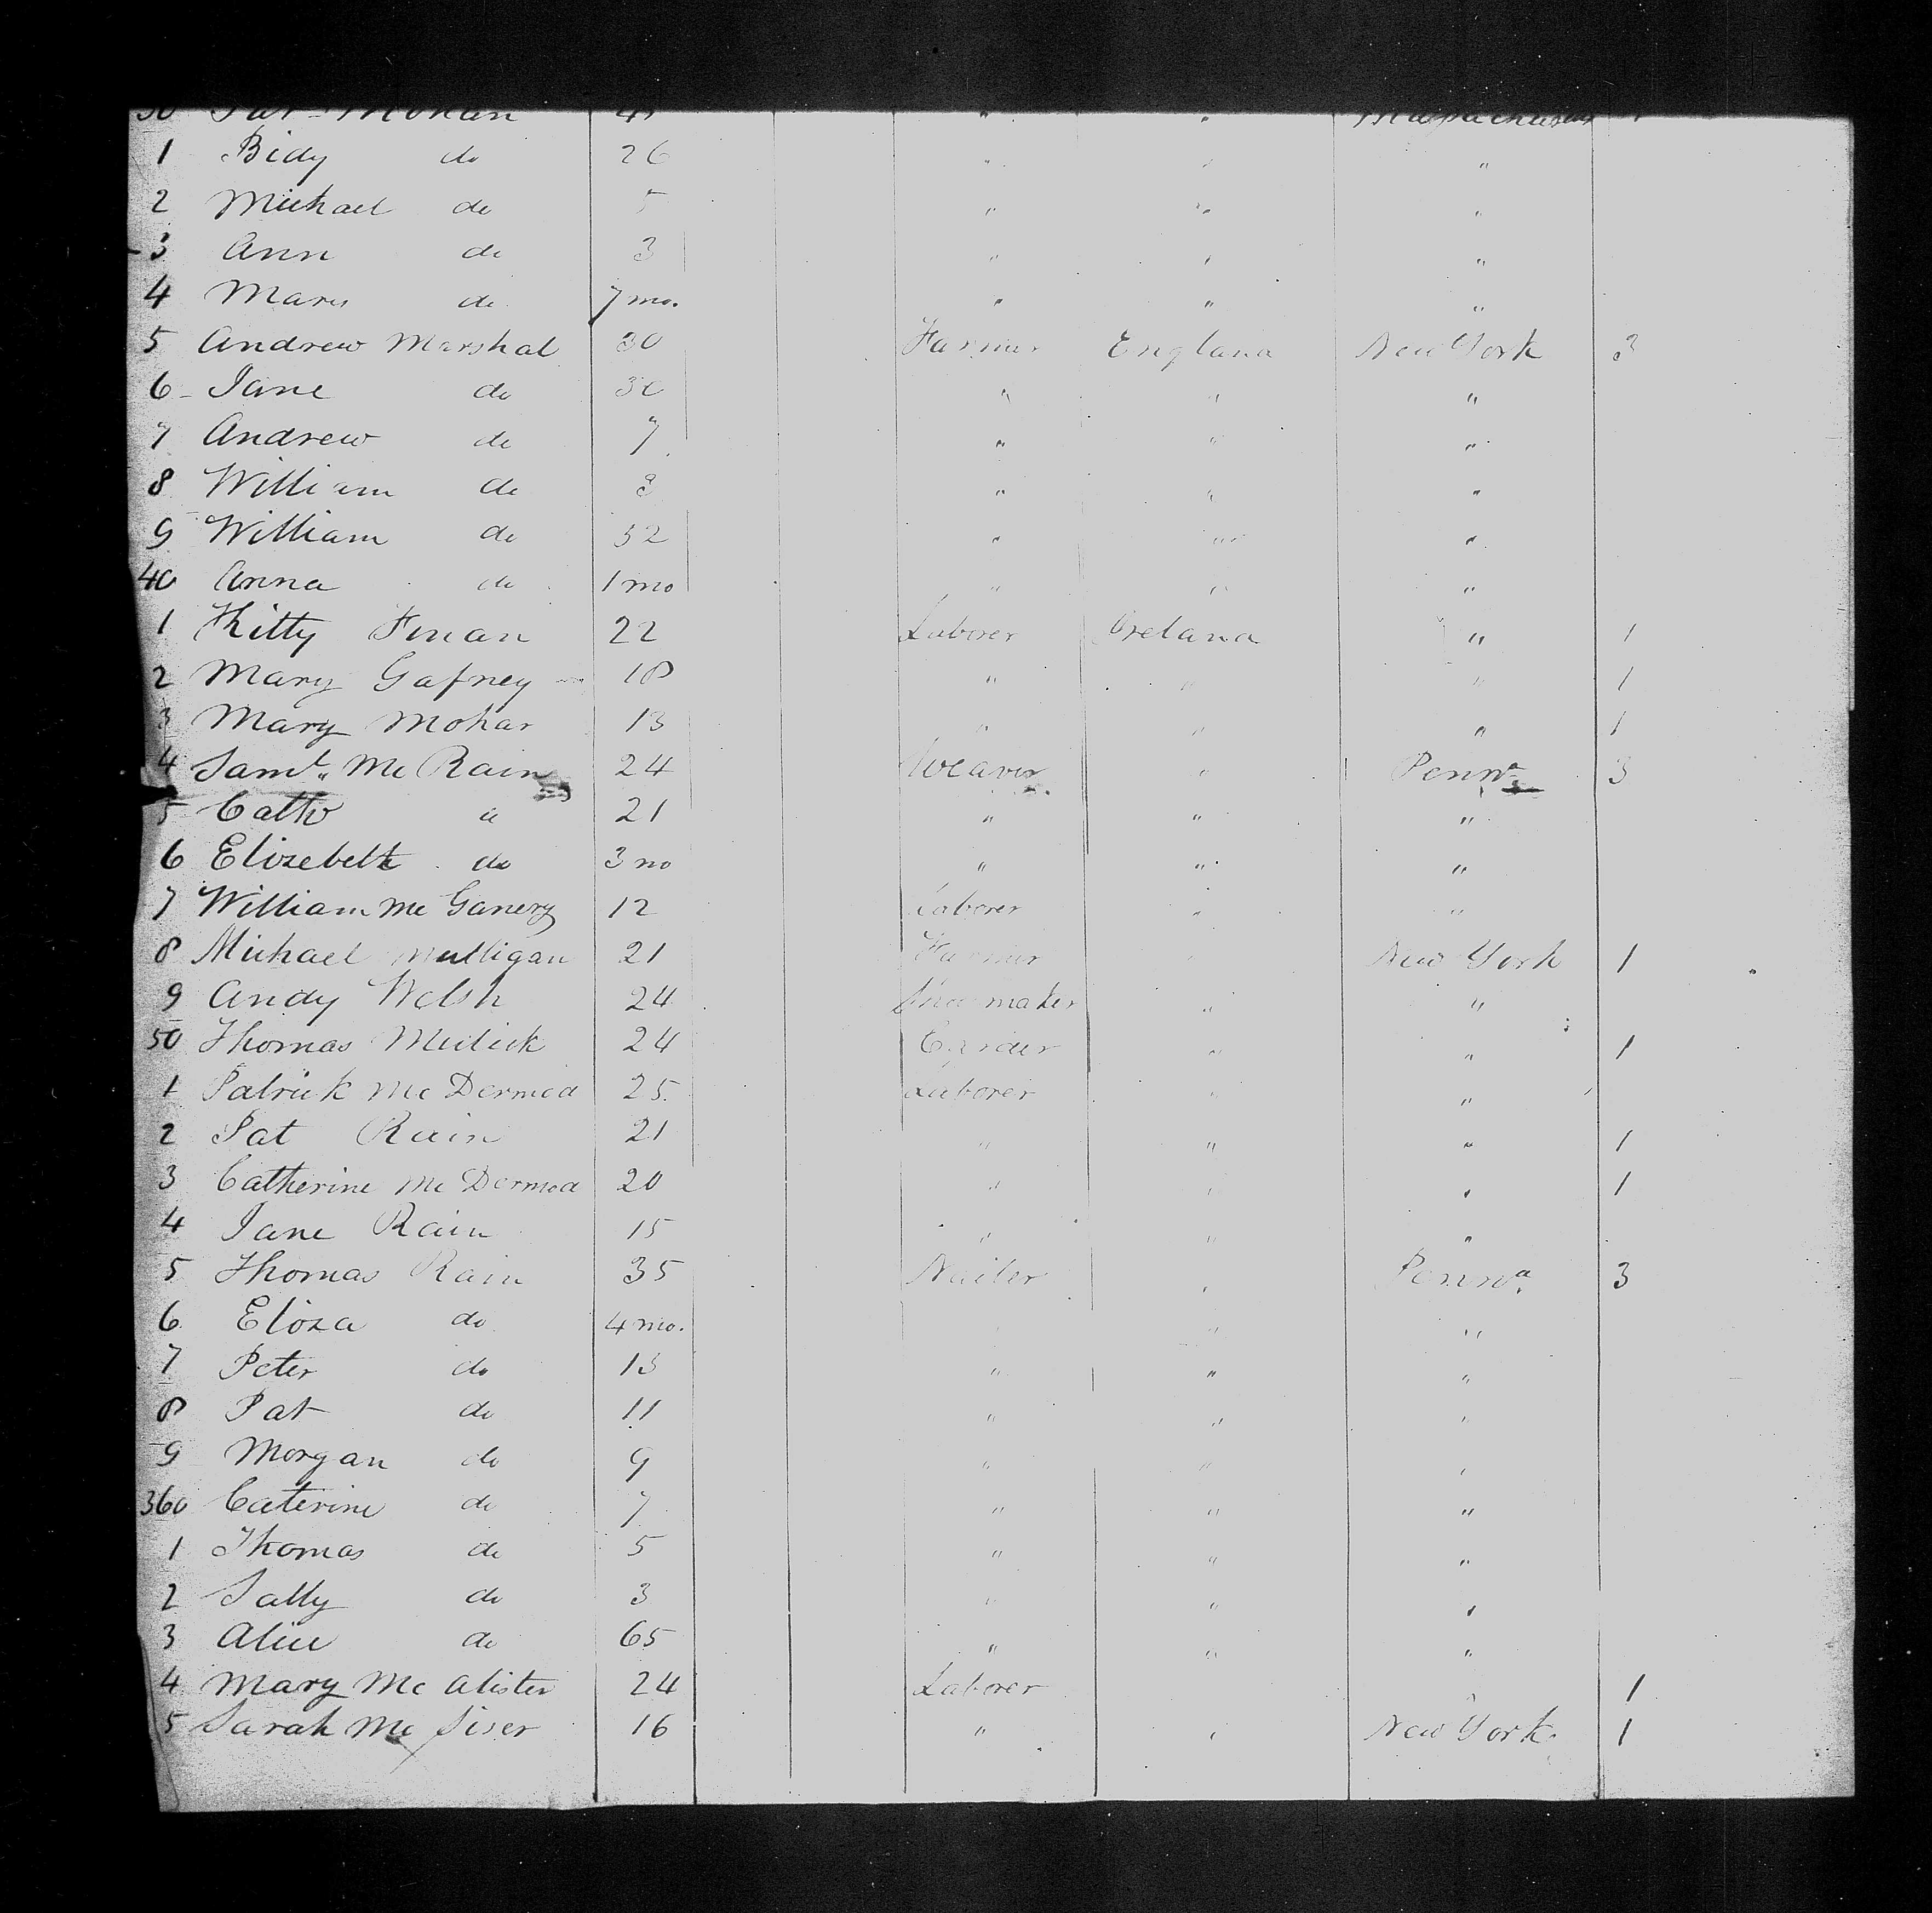 30 Pat Mohan 45 " " Massachusetts 1
1 Bidy do 26 " " "
2 Michael do 5 " " "
3 Ann do 3 " " "
4 Mary do 7 mo. " " "
5 Andrew Marshal 30 Farmer England New York 3
6 Jane do 30 " " "
7 Andrew do 7 " " "
8 William do 3 " " "
9 William do 52 " " "
40 Anna do 1 mo " " "
1 Kitty Finan 22 Laborer Ireland " 1
2 Mary Gafney 18 " " " 1
3 Mary Mohar 13 " " " 1
4 Saml. Mc Rain 24 Weaver " Penna 3
5 Cath do 21 " " "
6 Elizebeth do 3 mo " " "
7 William Mc Ganery 12 Laborer " "
8 Michael Mulligan 21 Farmer " New York 1
9 Andy Welsh 24 Shoemaker " "
50 Thomas 24 " " 1
1 Patrick Mc Dermod 25. Laborer " "
2 Pat Rain 21 " " " 1
3 Catherine Mc Dermod 20 " " " 1
4 Jane Rain 15 " " "
5 Thomas Rain 35 Nailer " Penna. 3
6 Eliza do 4 mo. " "
7 Peter do 13 " " "
8 Pat do 11 " " "
9 Morgan do 9 " " "
360 Caterine do 7 " " "
1 Thomas do 5 " " "
2 Sally do 3 " " "
3 Alice do 65 " " "
4 Mary Mc Alister 24 Laborer " 1
5 Sarah Mc Siser 16 " " New York 1